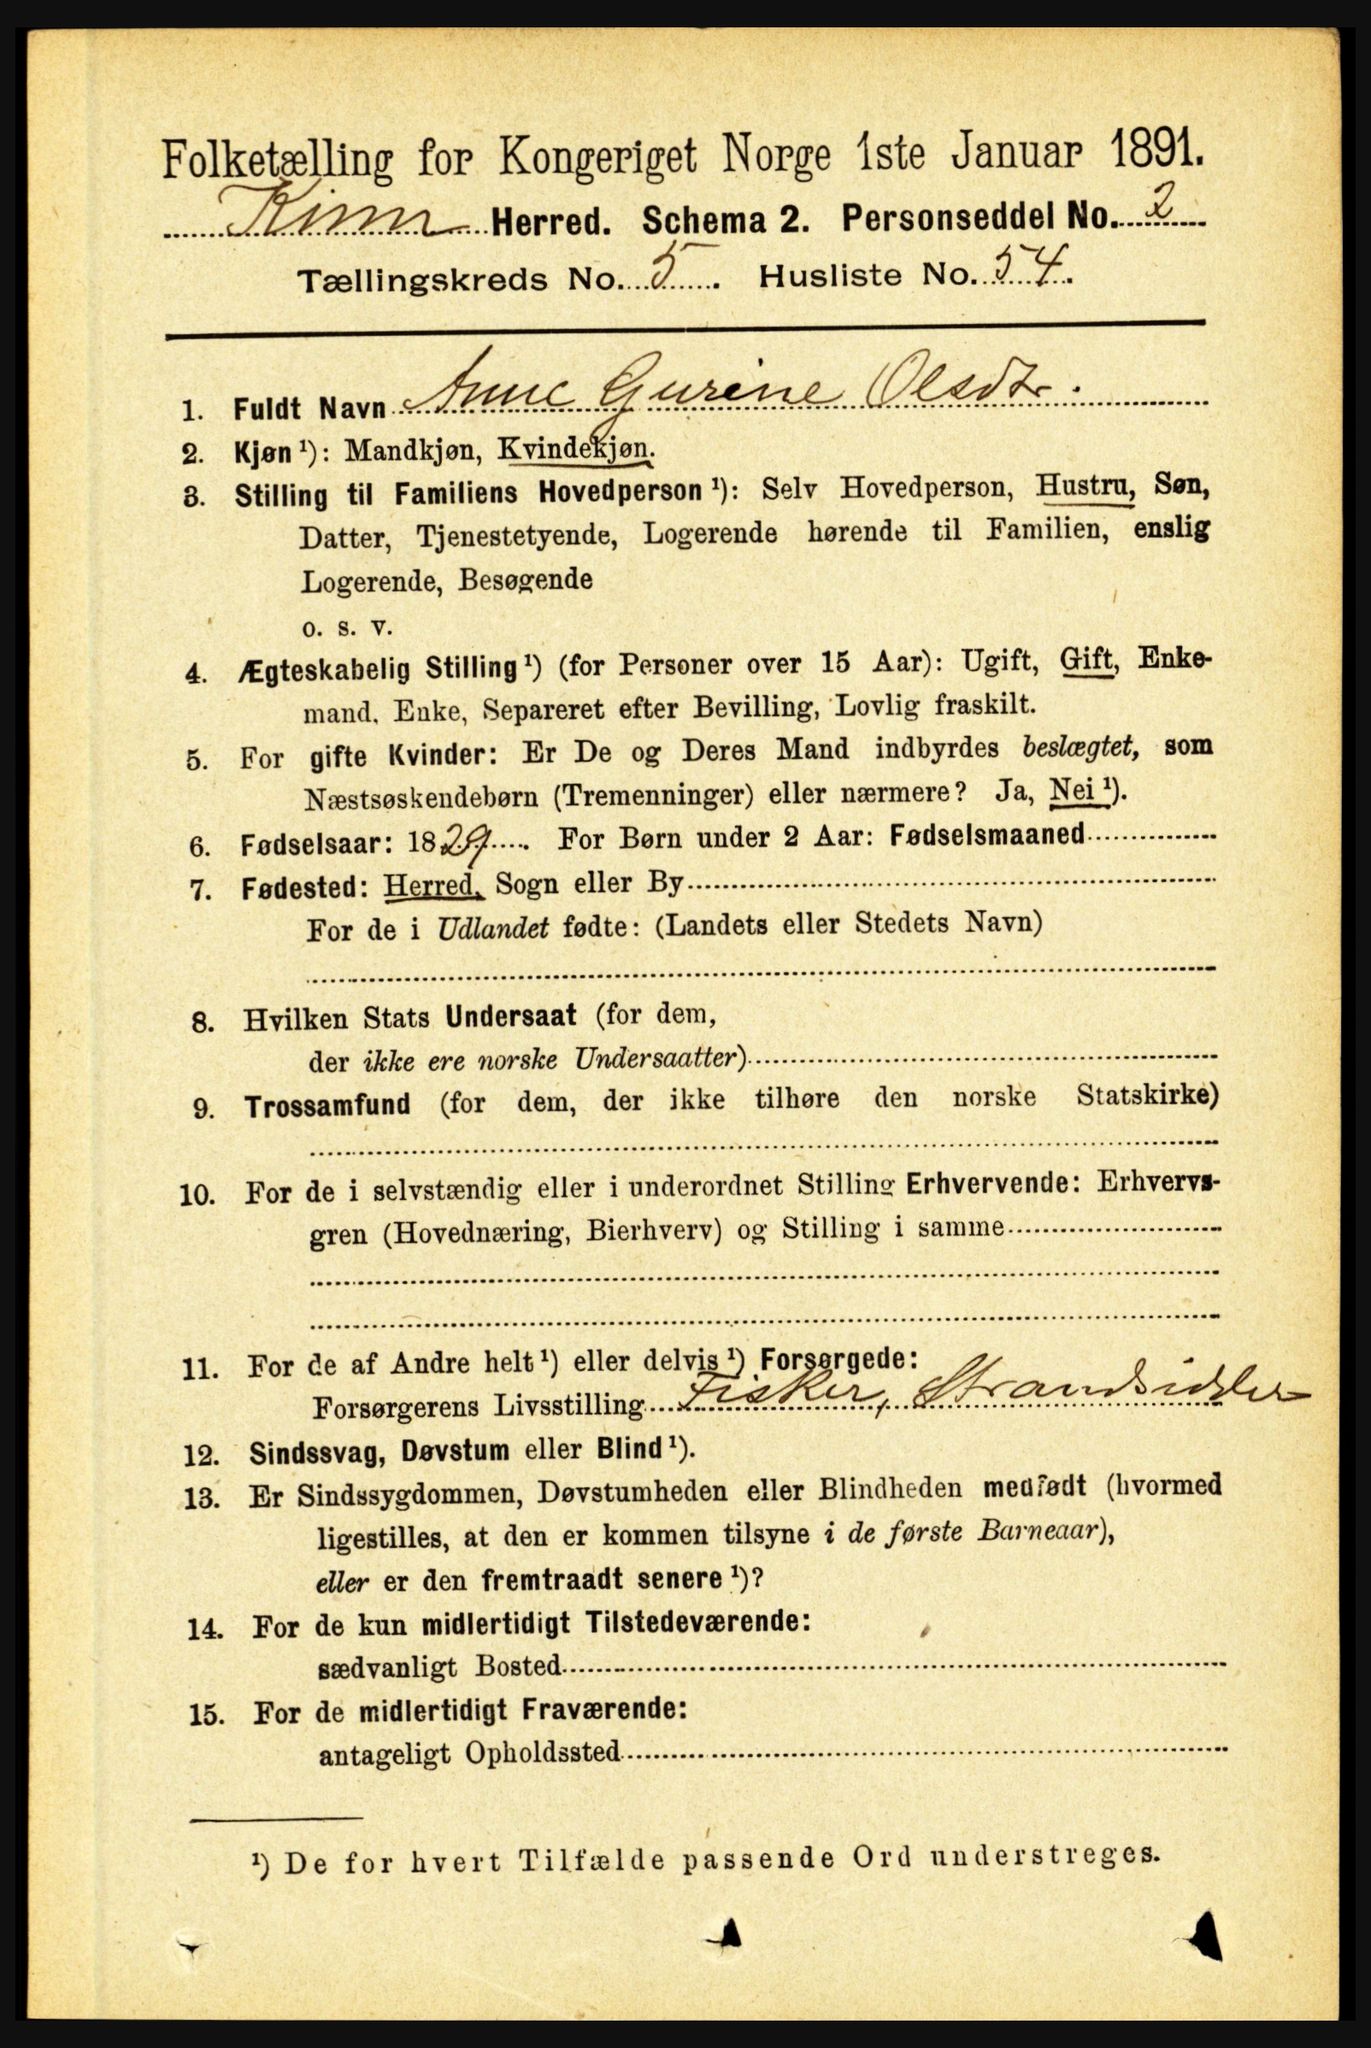 Folketælling for Kongeriget Norge 1ste Januar 1891.
Kinn Herred. Schema 2. Personseddel No. 2
Tællingskreds No. 5. Husliste No. 54.
1. Fuldt Navn Anne Gurine Olsdtr.
2. Kjøn ¹): Mandkjøn, Kvindekjøn.
3. Stilling til Familiens Hovedperson ¹): Selv Hovedperson, Hustru, Søn,
Datter, Tjenestetyende, Logerende hørende til Familien, enslig
Logerende, Besøgende
o. s. v.
4. Ægteskabelig Stilling ¹) (for Personer over 15 Aar): Ugift, Gift, Enke-
mand, Enke, Separeret efter Bevilling, Lovlig fraskilt.
5. For gifte Kvinder: Er De og Deres Mand indbyrdes beslægtet, som
Næstsøskendebørn (Tremenninger) eller nærmere? Ja, Nei ¹).
6. Fødselsaar: 1829. For Børn under 2 Aar: Fødselsmaaned
7. Fødested: Herred, Sogn eller By
For de i Udlandet fødte: (Landets eller Stedets Navn)
8. Hvilken Stats Undersaat (for dem,
der ikke ere norske Undersaatter)
9. Trossamfund (for dem, der ikke tilhøre den norske Statskirke)
10. For de i selvstændig eller i underordnet Stilling Erhvervende: Erhvervs-
gren (Hovednæring, Bierhverv) og Stilling i samme
11. For de af Andre helt ¹) eller delvis ¹) Forsørgede:
Forsørgerens Livsstilling Fisker, Strandsidder
12. Sindssvag, Døvstum eller Blind ¹).
13. Er Sindssygdommen, Døvstumheden eller Blindheden medfødt (hvormed
ligestilles, at den er kommen tilsyne i de første Barneaar),
eller er den fremtraadt senere ¹)?
14. For de kun midlertidigt Tilstedeværende:
sædvanligt Bosted
15. For de midlertidigt Fraværende:
antageligt Opholdssted
¹) De for hvert Tilfælde passende Ord understreges.